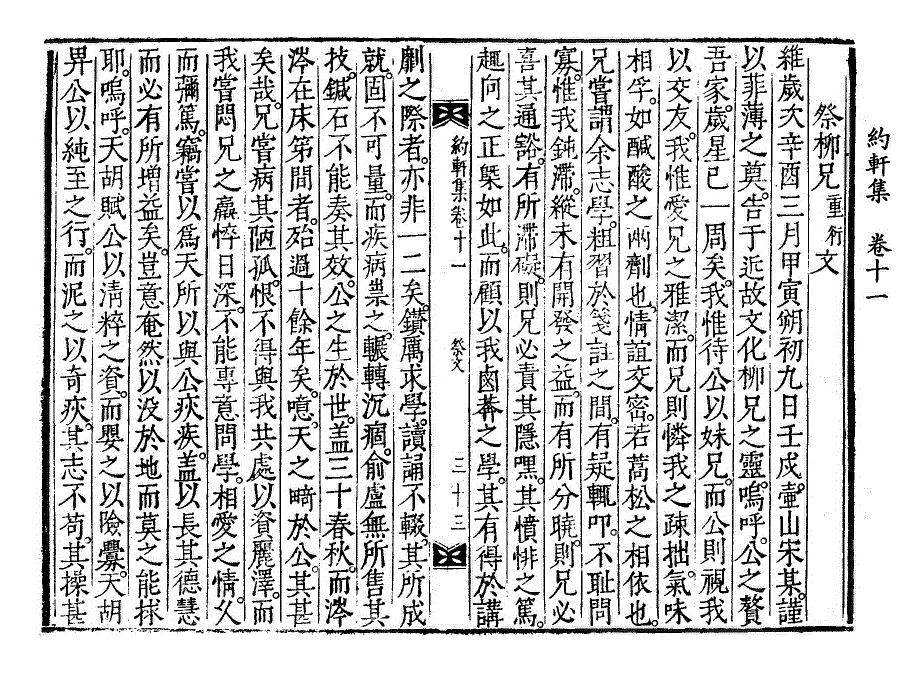 約軒集 卷十一
祭柳兄重衍文
維歲次辛酉三月甲寅朔初九日壬戌壺山宋某。謹
以菲薄之奠。告于近故文化柳兄之靈。嗚呼。公之贅
吾家。歲星已一周矣。我惟待公以妹兄。而公則視我
以交友。我惟愛兄之雅潔。而兄則憐我之疎拙。氣味
相孚。如醎酸之幽劑也。情誼交密。若蒿松之相依也。
兄嘗謂余志學。粗習於箋註之間。有疑輒叩。不耻問
寡。惟我鈍滯。縱未有開發之益。而有所分曉。則兄必
喜其通豁。有所滯礙。則兄必責其隱嘿。其憤悱之篤。
趣向之正槩如此。而顧以我鹵莽之學。其有得於講
約軒集卷十一 祭文 三十三
劘之際者。亦非一二矣。鑽厲求學。讀誦不輟。其所成
就。固不可量。而疾病祟之。輾轉沉痼。俞盧無所售其
技。鍼石不能奏其效。公之生於世。盖三十春秋。而涔
涔在床笫間者。殆過十餘年矣。噫。天之畸於公。其甚
矣哉。兄嘗病其陋孤。恨不得與我共處以資麗澤。而
我嘗悶兄之羸悴日深。不能專意問學。相愛之情。久
而彌篤。竊嘗以爲天所以與公疢疾。盖以長其德慧
而必有所增益矣。豈意奄然以没於地而莫之能捄
耶。嗚呼。天胡賦公以淸粹之資。而嬰之以險釁。天胡
畀公以純至之行。而泥之以奇疢。其志不苟。其操甚